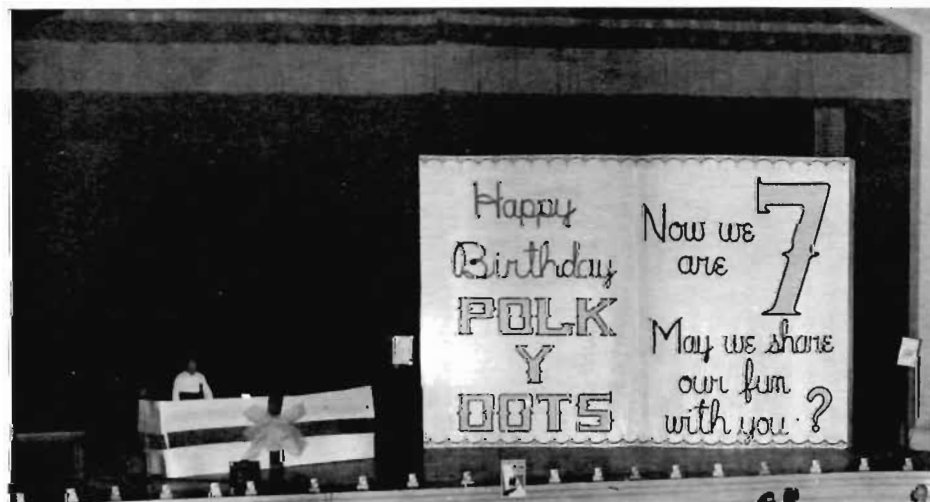 Happy
Birthday
POLK
Y
DOTS
Now we
are
7
May we share
our fun
with you?